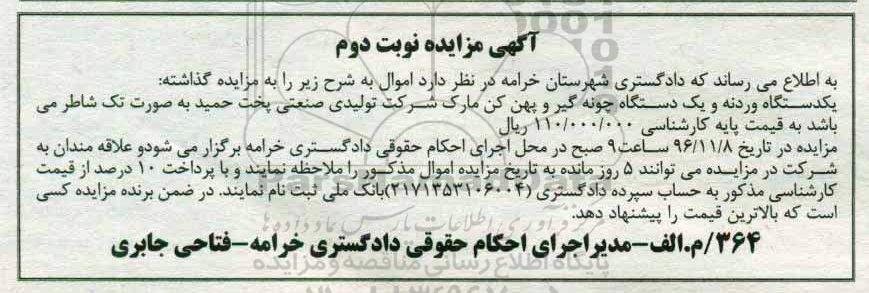 آگهی مزایده نوبت دوم
به اطلاع می رساند که دادگستری شهرستان خرامه در نظر دارد اموال به شرح زیر را به مزایده گذاشته:
یکدستگاه وردنه و یک دستگاه چونه گیر و پهن کن مارک شرکت تولیدی صنعتی پخت حمید به صورت تک شاطر می
باشد به قیمت پایه کارشناسی ۱۱۰/۰۰۰/۰۰۰ ریال
مزایده در تاریخ ۹۶/۱۱/۸ ساعت۹ صبح در محل اجرای احکام حقوقی دادگستری خرامه برگزار می شودو علاقه مندان به
شرکت در مزایده می توانند ۵ روز مانده به تاریخ مزایده اموال مذکور را ملاحظه نمایند و با پرداخت ۱۰ درصد از قیمت
کارشناسی مذکور به حساب سپرده دادگستری (۲۱۷۱۳۵۳۱۰۶۰۰۴)بانک ملی ثبت نام نمایند. در ضمن برنده مزایده کسی
است که بالاترین قیمت را پیشنهاد دهد.
۳۶۴/م.الف-مدیراجرای احکام حقوقی دادگستری خرامه-فتاحی جابری
پایگاه اطلاع رسانی مناقصه و مزایده